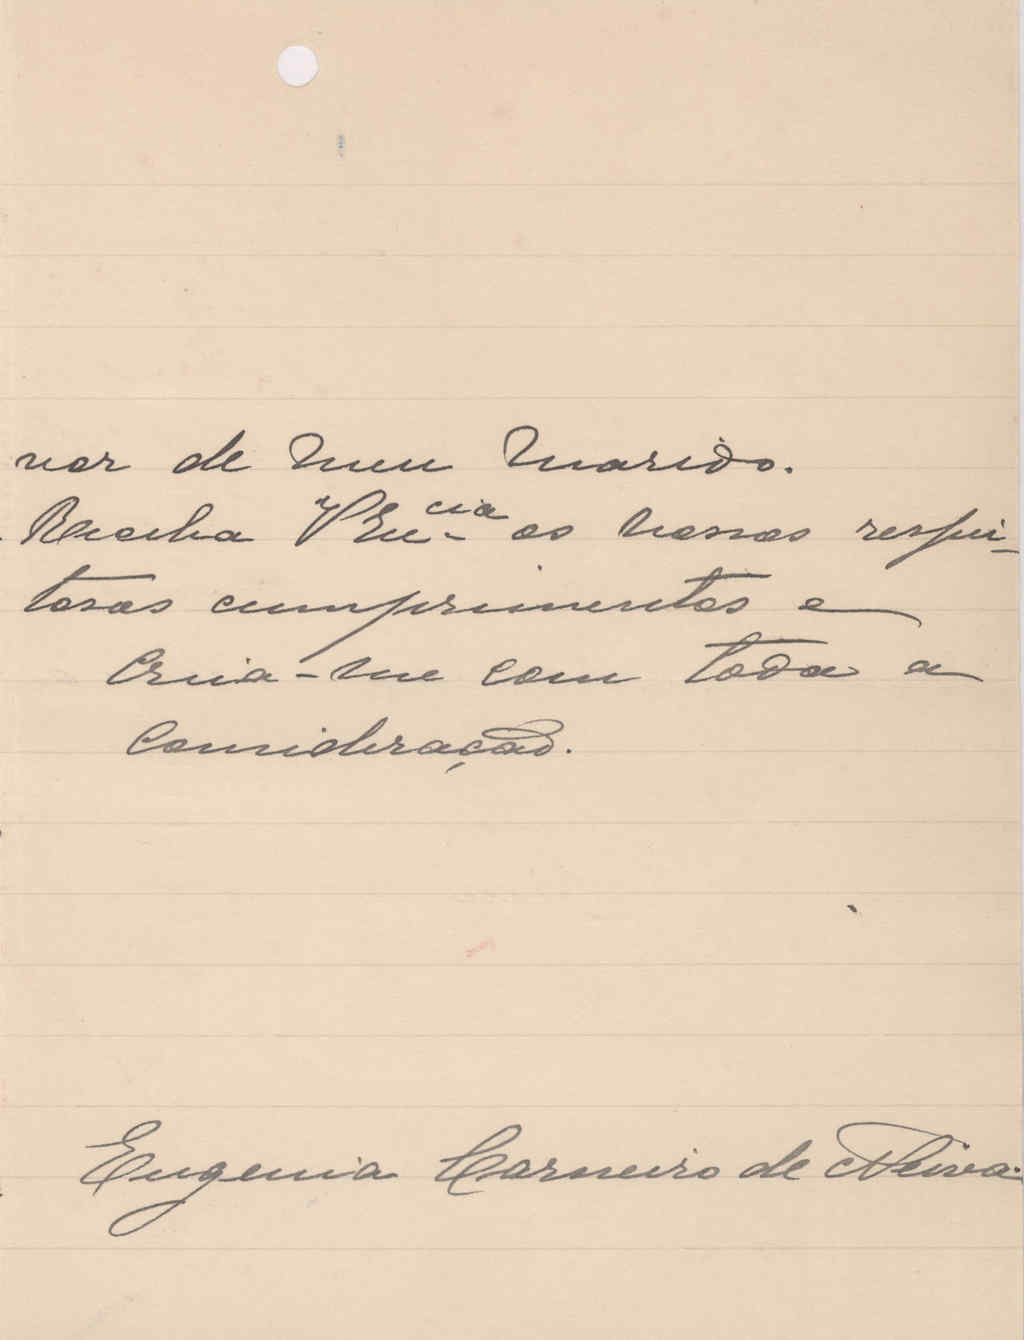 vor de meu marido.
Receba V Exª cia os nossos respei-
tosos cumprimentos e
Creia-me com toda a
Consideração.
Eugenia Carneiro de Neiva.